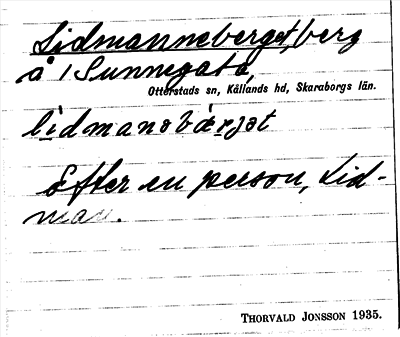 Lidmanneberget, berg
å 1 Sunnegata,
Otterstads sn, Kållands hd, Skaraborgs län.
lidmanəbærjət
Efter en person, Lid-
man.
THORVALD JONSSON 1935.